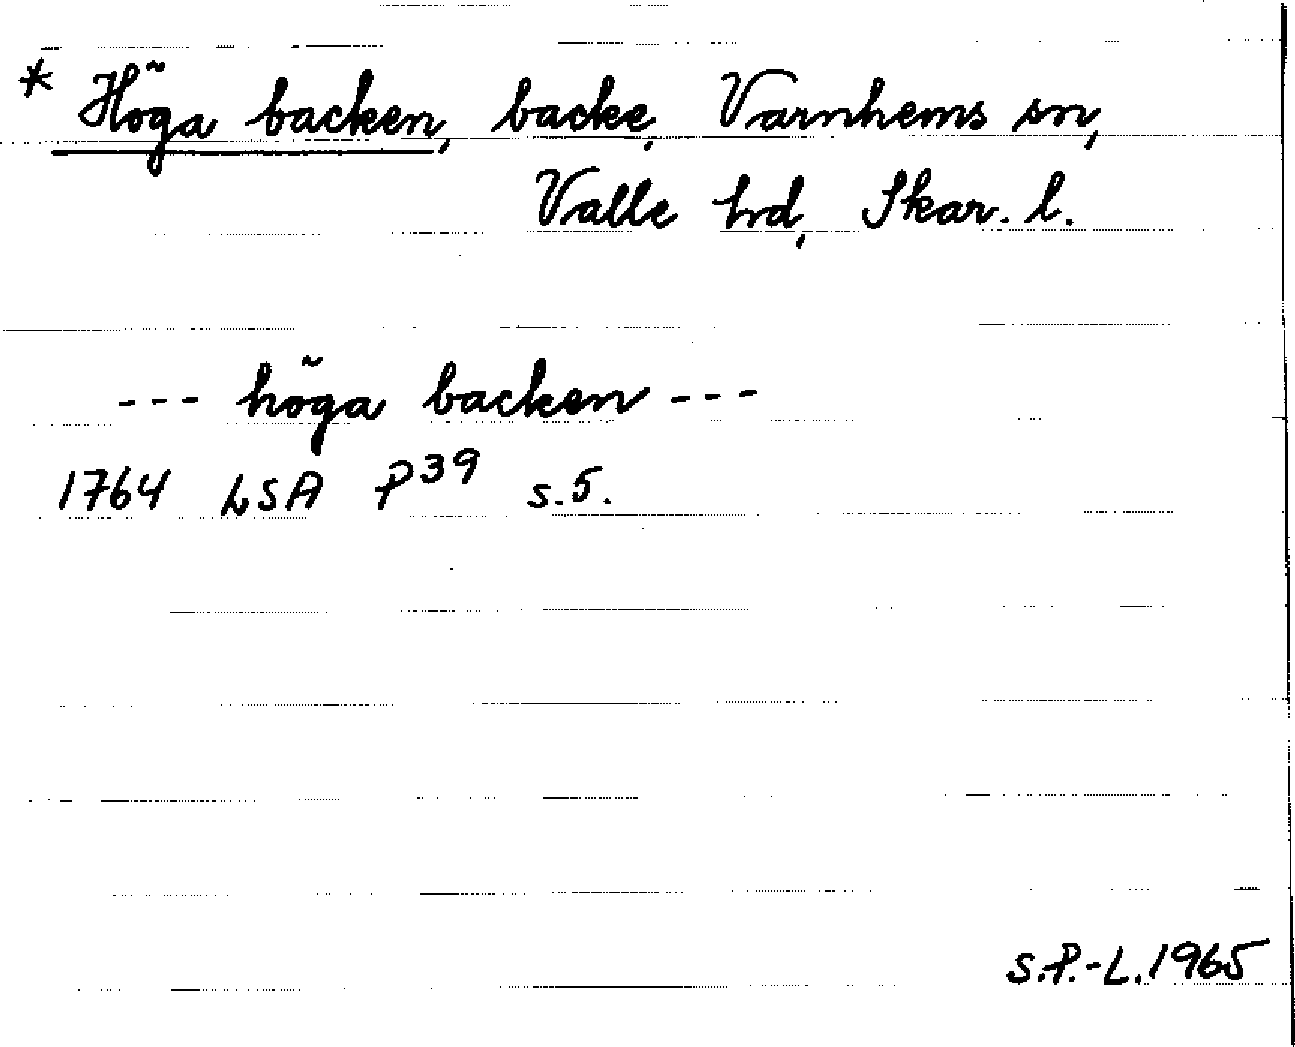 * Höga backen, backe, Varnhems sn,
Valle hd, Skar. l.
--- höga backen ---
1764 LSA P39 s.5.
S.P.-L.1965